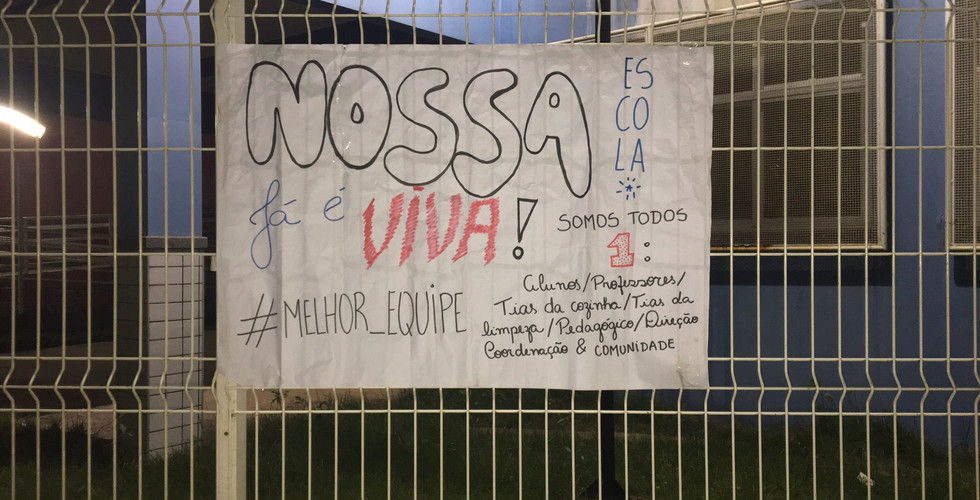 NOSSA
ES
CO
LA
Já é VIVA!
SOMOS TODOS
1:
Alunos/Professores/
Tias da cozinha/Tias da
limpeza/Pedagógico/Direção
Coordenação & COMUNIDADE
#MELHOR_EQUIPE